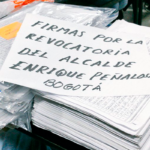 FIRMAS POR LA
REVOCATORIA
DEL ALCALDE
ENRIQUE PEÑALOSA
BOGOTÁ